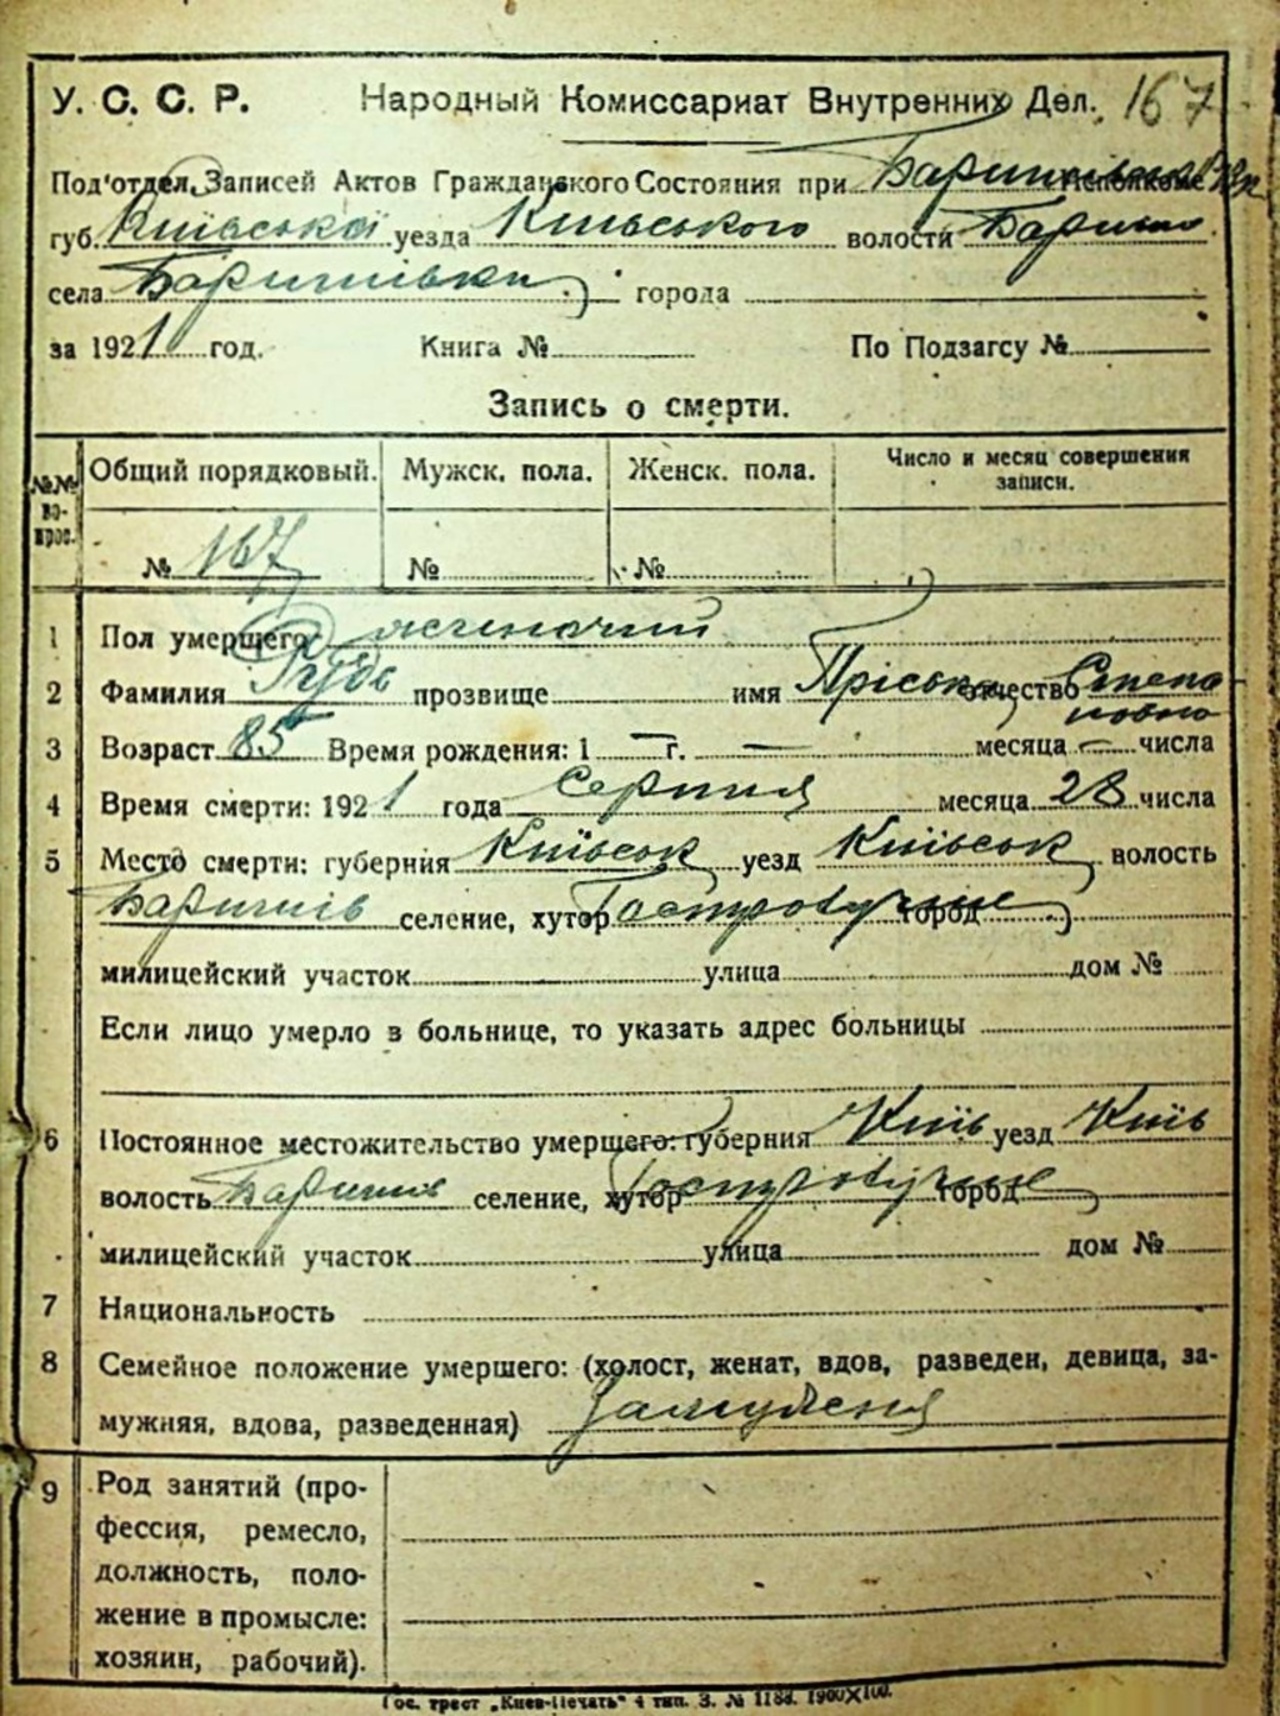 У. С. С. Р. Народный Комиссариат Внутренних Дел. 167
Под'отдел Записей Актов Гражданского Состояния при Исполкоме
губ. Київської уезда Київського волости Баришо
села Баришівки города
за 1921 год. Книга № По Подзагсу №
Запись о смерти.
№№ во- прос. Общий порядковый. Мужск. пола. Женск. пола. Число и месяц совершения записи.
№ 167 № №
1 Пол умершего: жіночий
2 Фамилия Рудь прозвище имя Пріська отчество Степа
новна
3 Возраст 85 Время рождения: 1 — г. — месяца — числа
4 Время смерти: 1921 года Серпня месяца 28 числа
5 Место смерти: губерния Київськ уезд Київськ волость
Баришів селение, хутор город
милицейский участок улица дом №
Если лицо умерло в больнице, то указать адрес больницы
6 Постоянное местожительство умершего: губерния Київ уезд Київ
волость Баришів селение, хутор город
милицейский участок улица дом №
7 Национальность
8 Семейное положение умершего: (холост, женат, вдов, разведен, девица, за-
мужняя, вдова, разведенная) Замужня
9 Род занятий (про-
фессия, ремесло,
должность, поло-
жение в промысле:
хозяин, рабочий).
Гос. трест „Киев-Печать" 4 тип. З. № 1188. 1900×100.